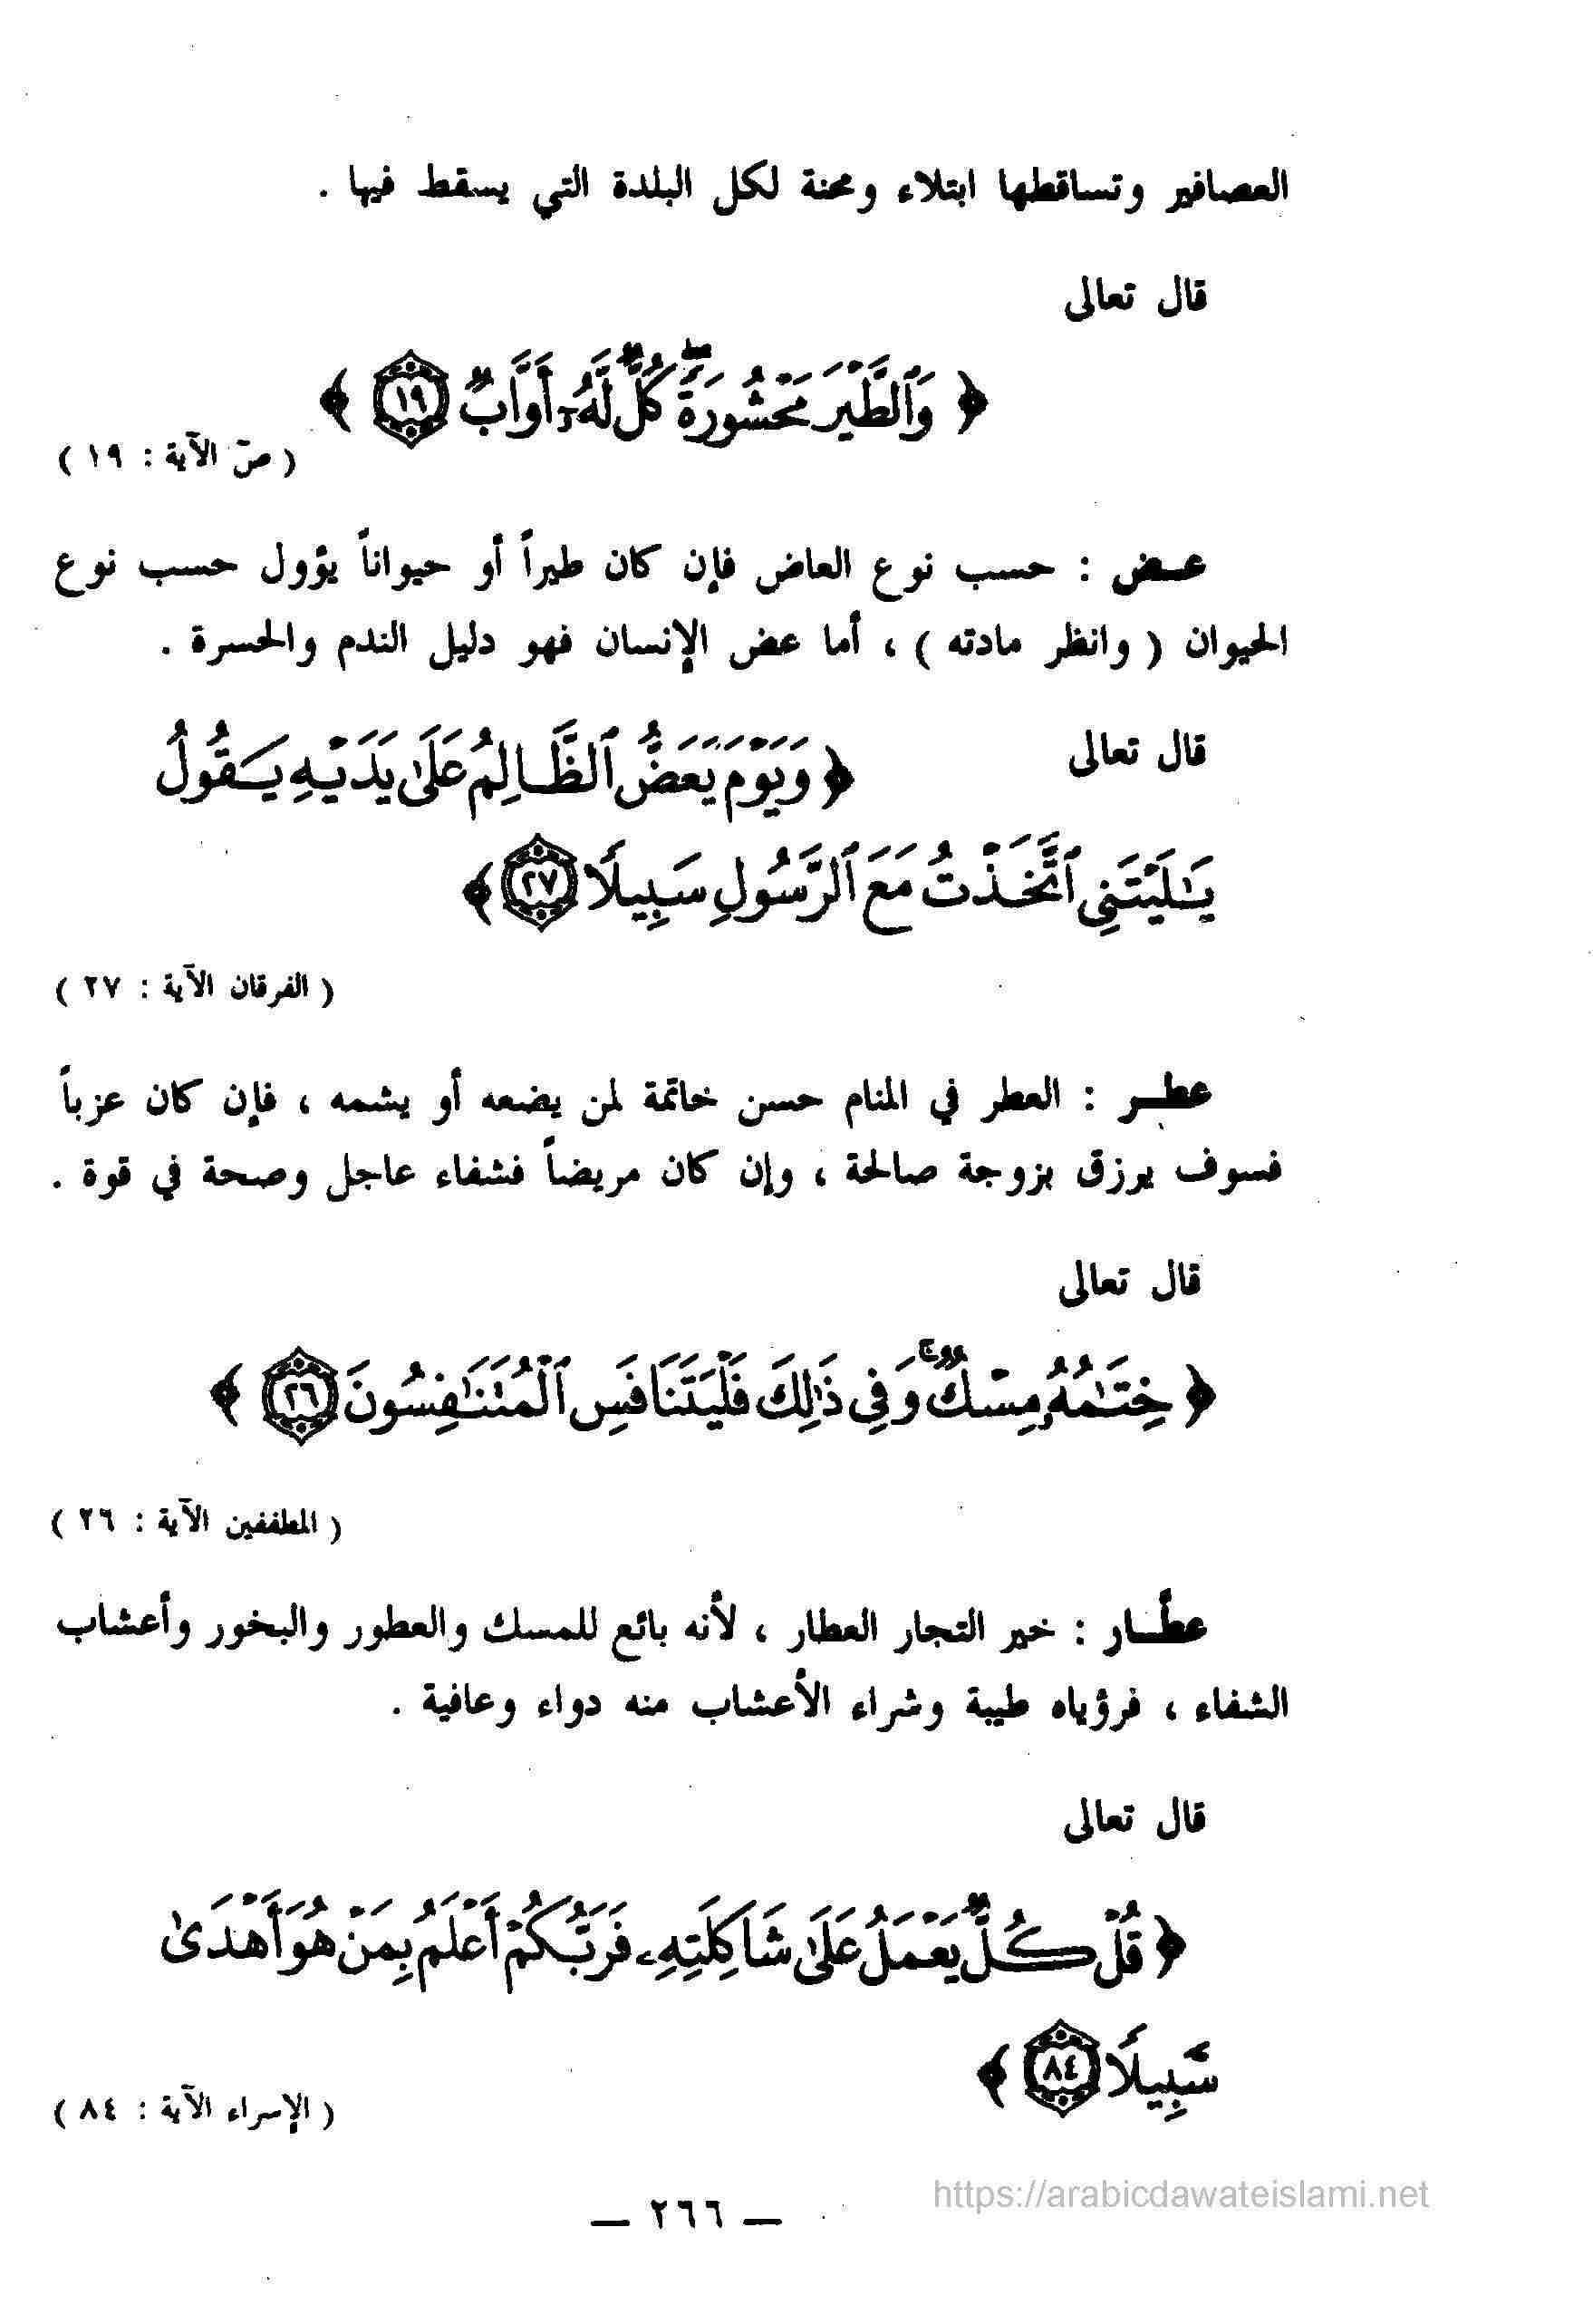 العصافير وتساقطها ابتلاء ومحنة لكل البلدة التي يسقط فيها .
قال تعالى
﴿ وَٱلطَّيْرَ مَحْشُورَةً ۖ كُلٌّ لَّهُۥٓ أَوَّابٌ ١٩ ﴾
( صّ الآية : ١٩ )
عـض : حسب نوع العاض فإن كان طيراً أو حيواناً يؤول حسب نوع
الحيوان ( وانظر مادته ) ، أما عض الإنسان فهو دليل الندم والحسرة .
قال تعالى ﴿ وَيَوْمَ يَعَضُّ ٱلظَّالِمُ عَلَىٰ يَدَيْهِ يَقُولُ
يَٰلَيْتَنِى ٱتَّخَذْتُ مَعَ ٱلرَّسُولِ سَبِيلًا ٢٧ ﴾
( الفرقان الآية : ٢٧ )
عطـر : العطر في المنام حسن خاتمة لمن يضعه أو يشمه ، فإن كان عزباً
فسوف يرزق بزوجة صالحة ، وإن كان مريضاً فشفاء عاجل وصحة في قوة .
قال تعالى
﴿ خِتَٰمُهُۥ مِسْكٌ ۚ وَفِى ذَٰلِكَ فَلْيَتَنَافَسِ ٱلْمُتَنَٰفِسُونَ ٢٦ ﴾
( المطففين الآية : ٢٦ )
عطَّـار : خير التجار العطار ، لأنه بائع للمسك والعطور والبخور وأعشاب
الشفاء ، فرؤياه طيبة وشراء الأعشاب منه دواء وعافية .
قال تعالى
﴿ قُلْ كُلٌّ يَعْمَلُ عَلَىٰ شَاكِلَتِهِۦ فَرَبُّكُمْ أَعْلَمُ بِمَنْ هُوَ أَهْدَىٰ
سَبِيلًا ٨٤ ﴾
( الإسراء الآية : ٨٤ )
— ٢٦٦ —
https://arabicdawateislami.net